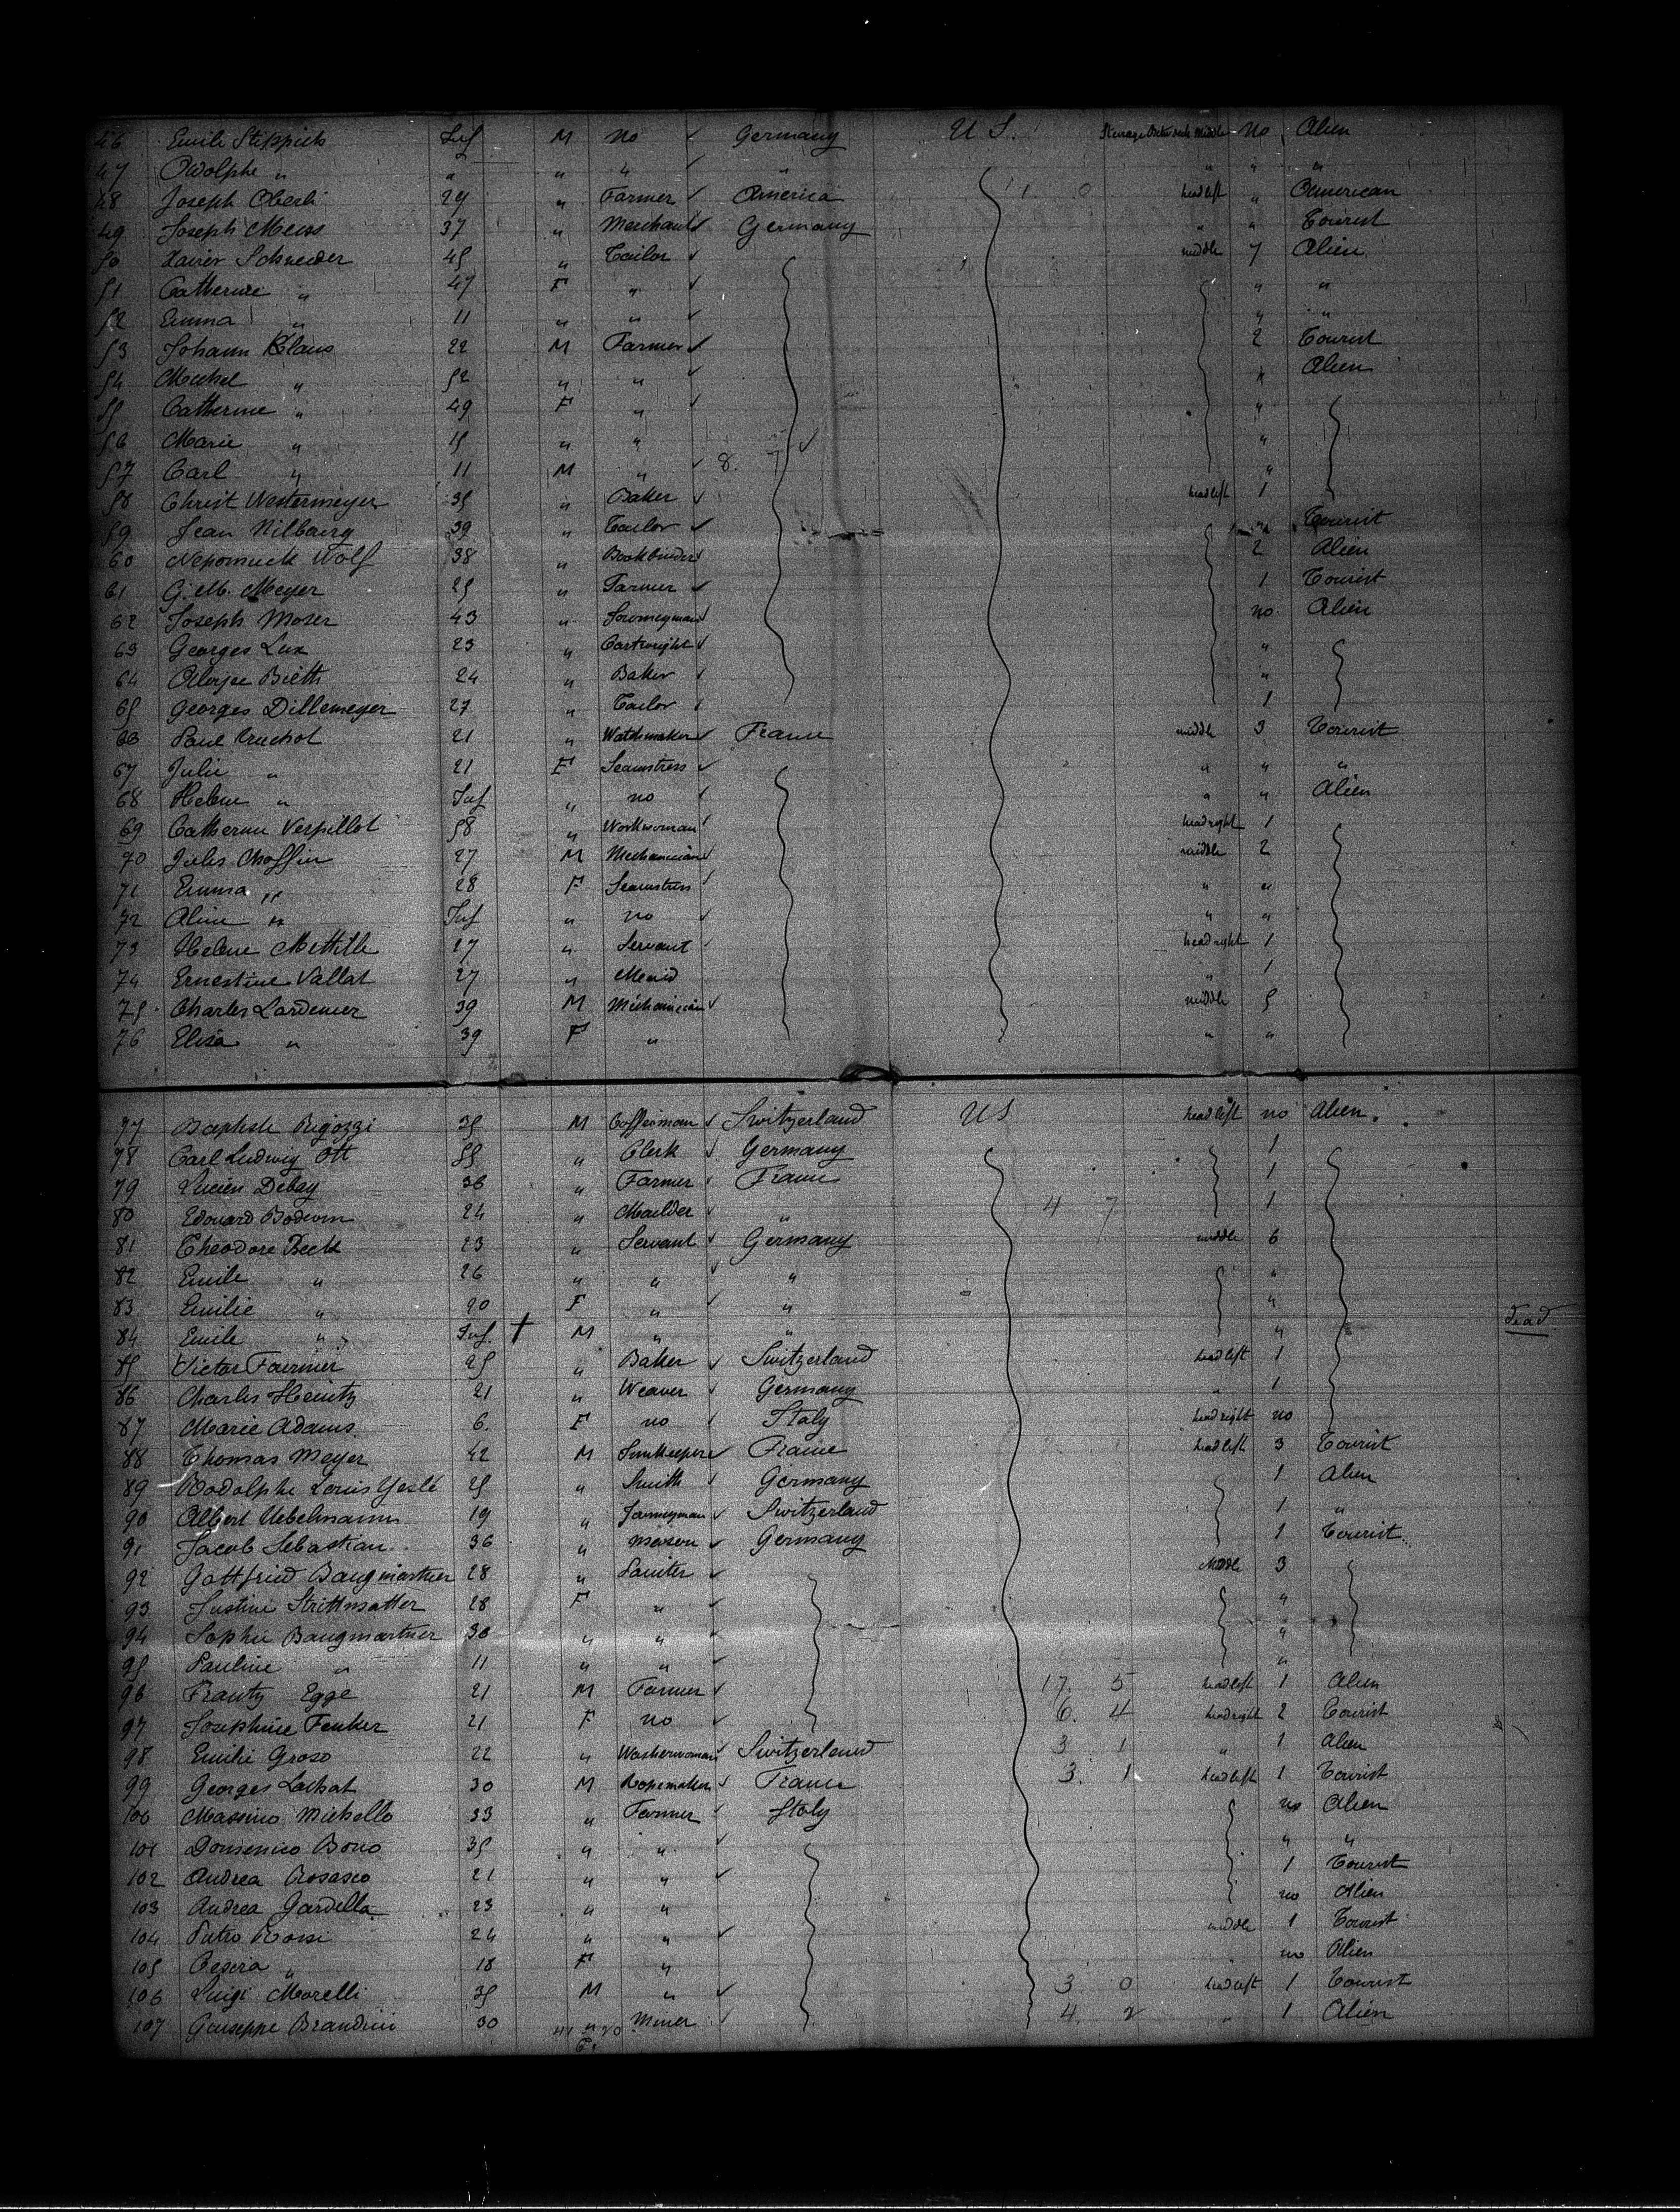 46 Emile Stippich Inf M no Germany U S. Steerage Between deck Middle no Alien
47 Adolphe " " " " " " " "
48 Joseph Oberli 29 " Farmer America 1 0 head left " American
49 Joseph Meiss 37 " Merchant Germany " " Tourist
50 Xavier Schneider 45 " Tailor middle 7 Alien
51 Catherine " 47 F " " "
52 Emma " 11 " " " "
53 Johann Klaus 22 M Farmer 2 Tourist
54 Michel " 52 " " " Alien
55 Catherine " 49 F " "
56 Marie " 15 " " "
57 Carl " 11 M " 8. 7 "
58 Christ Westermeyer 35 " Baker head left 1
59 Jean 39 " Tailor Tourist
60 Nepomuck Wolf 38 " Bookbinder 2 Alien
61 G. M. Meyer 25 " Farmer 1 Tourist
62 Joseph Moser 43 " Journeyman no Alien
63 Georges Lux 23 " Cartwright "
64 Aloyse Bieth 24 " Baker "
65 Georges Dillemeyer 27 " Tailor 1
66 Paul Truchot 21 " Watchmaker France middle 3 Tourist
67 Julie " 21 F Seamstress " " "
68 Helene " Inf " no " " Alien
69 Catherine Verpillot 58 " Workwoman head right 1
70 Jules Choffin 27 M Mechanician middle 2
71 Emma " 28 F Seamstress " "
72 Aline " Inf " no " "
73 Helene 27 " Servant head right 1
74 Ernestine Vallat 27 " " 1
75 Charles Lardenier 39 M Mechanician middle 5
76 Elisa " 39 F " " "
77 Baptiste Rigozzi 35 M Switzerland US head left no Alien.
78 Carl Ludwig Ott 55 " Clerk Germany 1
79 Lucien Debay 36 " Farmer France 1
80 Edouard 24 " Moulder " 4 7 1
81 Theodore Beck 23 " Servant Germany middle 6
82 Emile " 26 " " " "
83 Emilie " 20 F " " "
84 Emile " Inf. † M " " " Dead
85 Victor Fournier 25 " Baker Switzerland head left 1
86 Charles Heintz 21 " Weaver Germany " 1
87 Marie Adams. 6. F no Italy head right no
88 Thomas Meyer 42 M Innkeeper France head left 3 Tourist
89 Rodolphe Louis 25 " Smith Germany 1 Alien
90 Albert Uebelmann 19 " Journeyman Switzerland 1 "
91 Jacob Sebastian 36 " Mason Germany 1 Tourist
92 Gottfried Baugmartner 28 " Painter Middle 3
93 Justine Strittmatter 28 F " "
94 Sophie Baugmartner 38 " " "
95 Pauline " 11 " " "
96 Frantz Egge 21 M Farmer 17. 5 head left 1 Alien
97 Josephine Fenker 21 F no 6. 4 head right 2 Tourist
98 Emilie Groso 22 " Washerwoman Switzerland 3 1 " 1 Alien
99 Georges Lachat 30 M Ropemaker France 3. 1 head left 1 Tourist
100 Massino Michello 33 " Farmer Italy no Alien
101 Domenico Bono 35 " " " "
102 Andrea Rosasco 21 " " 1 Tourist
103 Andrea Gardella 23 " " no Alien
104 Pietro Rossi 24 " " middle 1 Tourist
105 " 18 F " no Alien
106 Luigi Morelli 35 M " 3 0 head left 1 Tourist
107 Giuseppe Brandini 30 " Miner 4 2 " 1 Alien